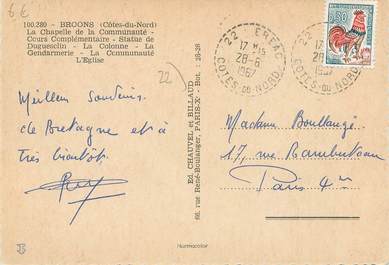 6 €
100.280 - BROONS (Côtes-du-Nord)
La Chapelle de la Communauté -
Cours Complémentaire - Statue de
Duguesclin - La Colonne - La
Gendarmerie - La Communauté
L'Eglise
22
Meilleurs Souvenirs
de Bretagne et à
très bientôt
Ed. CHAUVEL et BILLAUD
66, rue René-Boulanger, PARIS-X° - Bot. 28-28
22 EREAC
17 HS
28-8
1967
CÔTES-DU-NORD
17 HS
28-8
1967
CÔTES-DU-NORD
0,30
Madame Boullangé
17, rue Rambuteau
Paris 4e
Numacolor